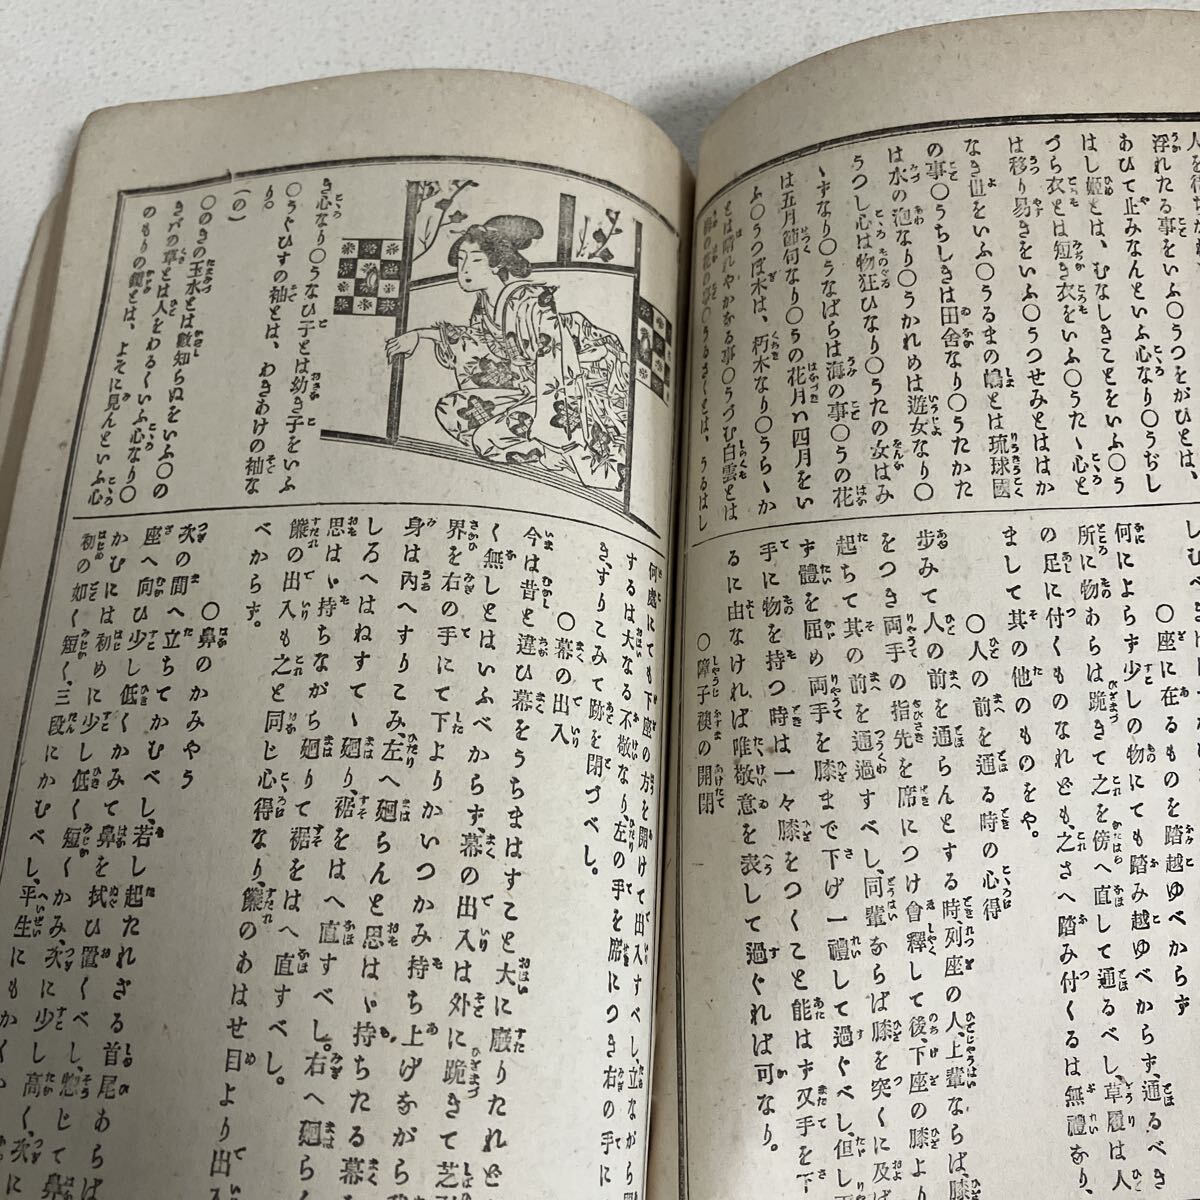 浮れたる事をいふ〇うつをがひとは
あひて止みなんといふ心なり〇うぢし
はし姫とは、むなしきことをいふ〇う
づら衣とは短き衣をいふ〇うたゝ心と
は移り易きをいふ〇うつせみとははか
なき世をいふ〇うるまの嶋とは琉球國
の事〇うちしきは田舎なり〇うたかた
は水の泡なり〇うかれめは遊女なり〇
うつし心は物狂ひなり〇うたの女はみ
ゝずなり〇うなばらは海の事〇うの花
は五月節句なり〇うの花月ハ四月をい
ふ〇うつぼ木は、朽木なり〇うらゝか
とは晴れやかなる事〇うづむ白雲とは
〇うるさくとは、うるはし
〇座に在るものを踏越ゆべからず
何によらず少しの物にても踏み越ゆべからず、通るべき
所に物あらは跪きて之を傍へ直して通るべし、草履は人
の足に付くものなれども、之さへ踏み付くるは無禮なり、
まして其の他のものをや。
〇人の前を通る時の心得
歩みて人の前を通らんとする時、列座の人、上輩ならば、膝
をつき両手の指先を席につけ會釋して後、下座の膝より
起ちて其の前を通過すべし、同輩ならば膝を突くに及ば
ず體を屈め両手を膝まで下げ一禮して過ぐべし、但し
手に物を持つ時は一々膝をつくこと能はず又手を下
るに由なければ、唯敬意を表して過ぐれば可なり。
〇障子襖の開閉
き心なり〇うなひ子とは幼き子をいふ
〇うぐひすの袖とは、わきあけの袖な
り。
(の)
〇のきの玉水とは數知らぬをいふ〇の
きバの草とは人をわるくいふ心なり〇
のもりの鏡とは、よそに見んといふ心
何處にても下座の方を開けて出入すべし、立ながら
するは大なる不敬なり、左の手を席につき右の手に
き、すりこみて跡を閉づべし。
〇幕の出入
今は昔と違ひ幕をうちまはすこと大に廢りたれど
く無しとはいふべからず、幕の出入は外に跪きて芝
界を右の手にて下よりかいつかみ持ち上げながら
身は内へすりこみ、左へ廻らんと思はゞ持ちたる幕
しろへはねすてゝ廻り、裾をはへ直すべし。右へ廻ら
思はゞ持ちながら廻りて裾をはへ直すべし。
簾の出入も之と同じ心得なり、簾のあはせ目より出
べからず。
〇鼻のかみやう
次の間へ立ちてかむべし、若し起たれざる首尾あらば
座へ向ひ少し低くかみて鼻を拭ひ置くべし、惣じて鼻
かむには初めに少し低く短くかみ、次に少し高く、次に
初の如く短く、三段にかむべし。平生にもかく